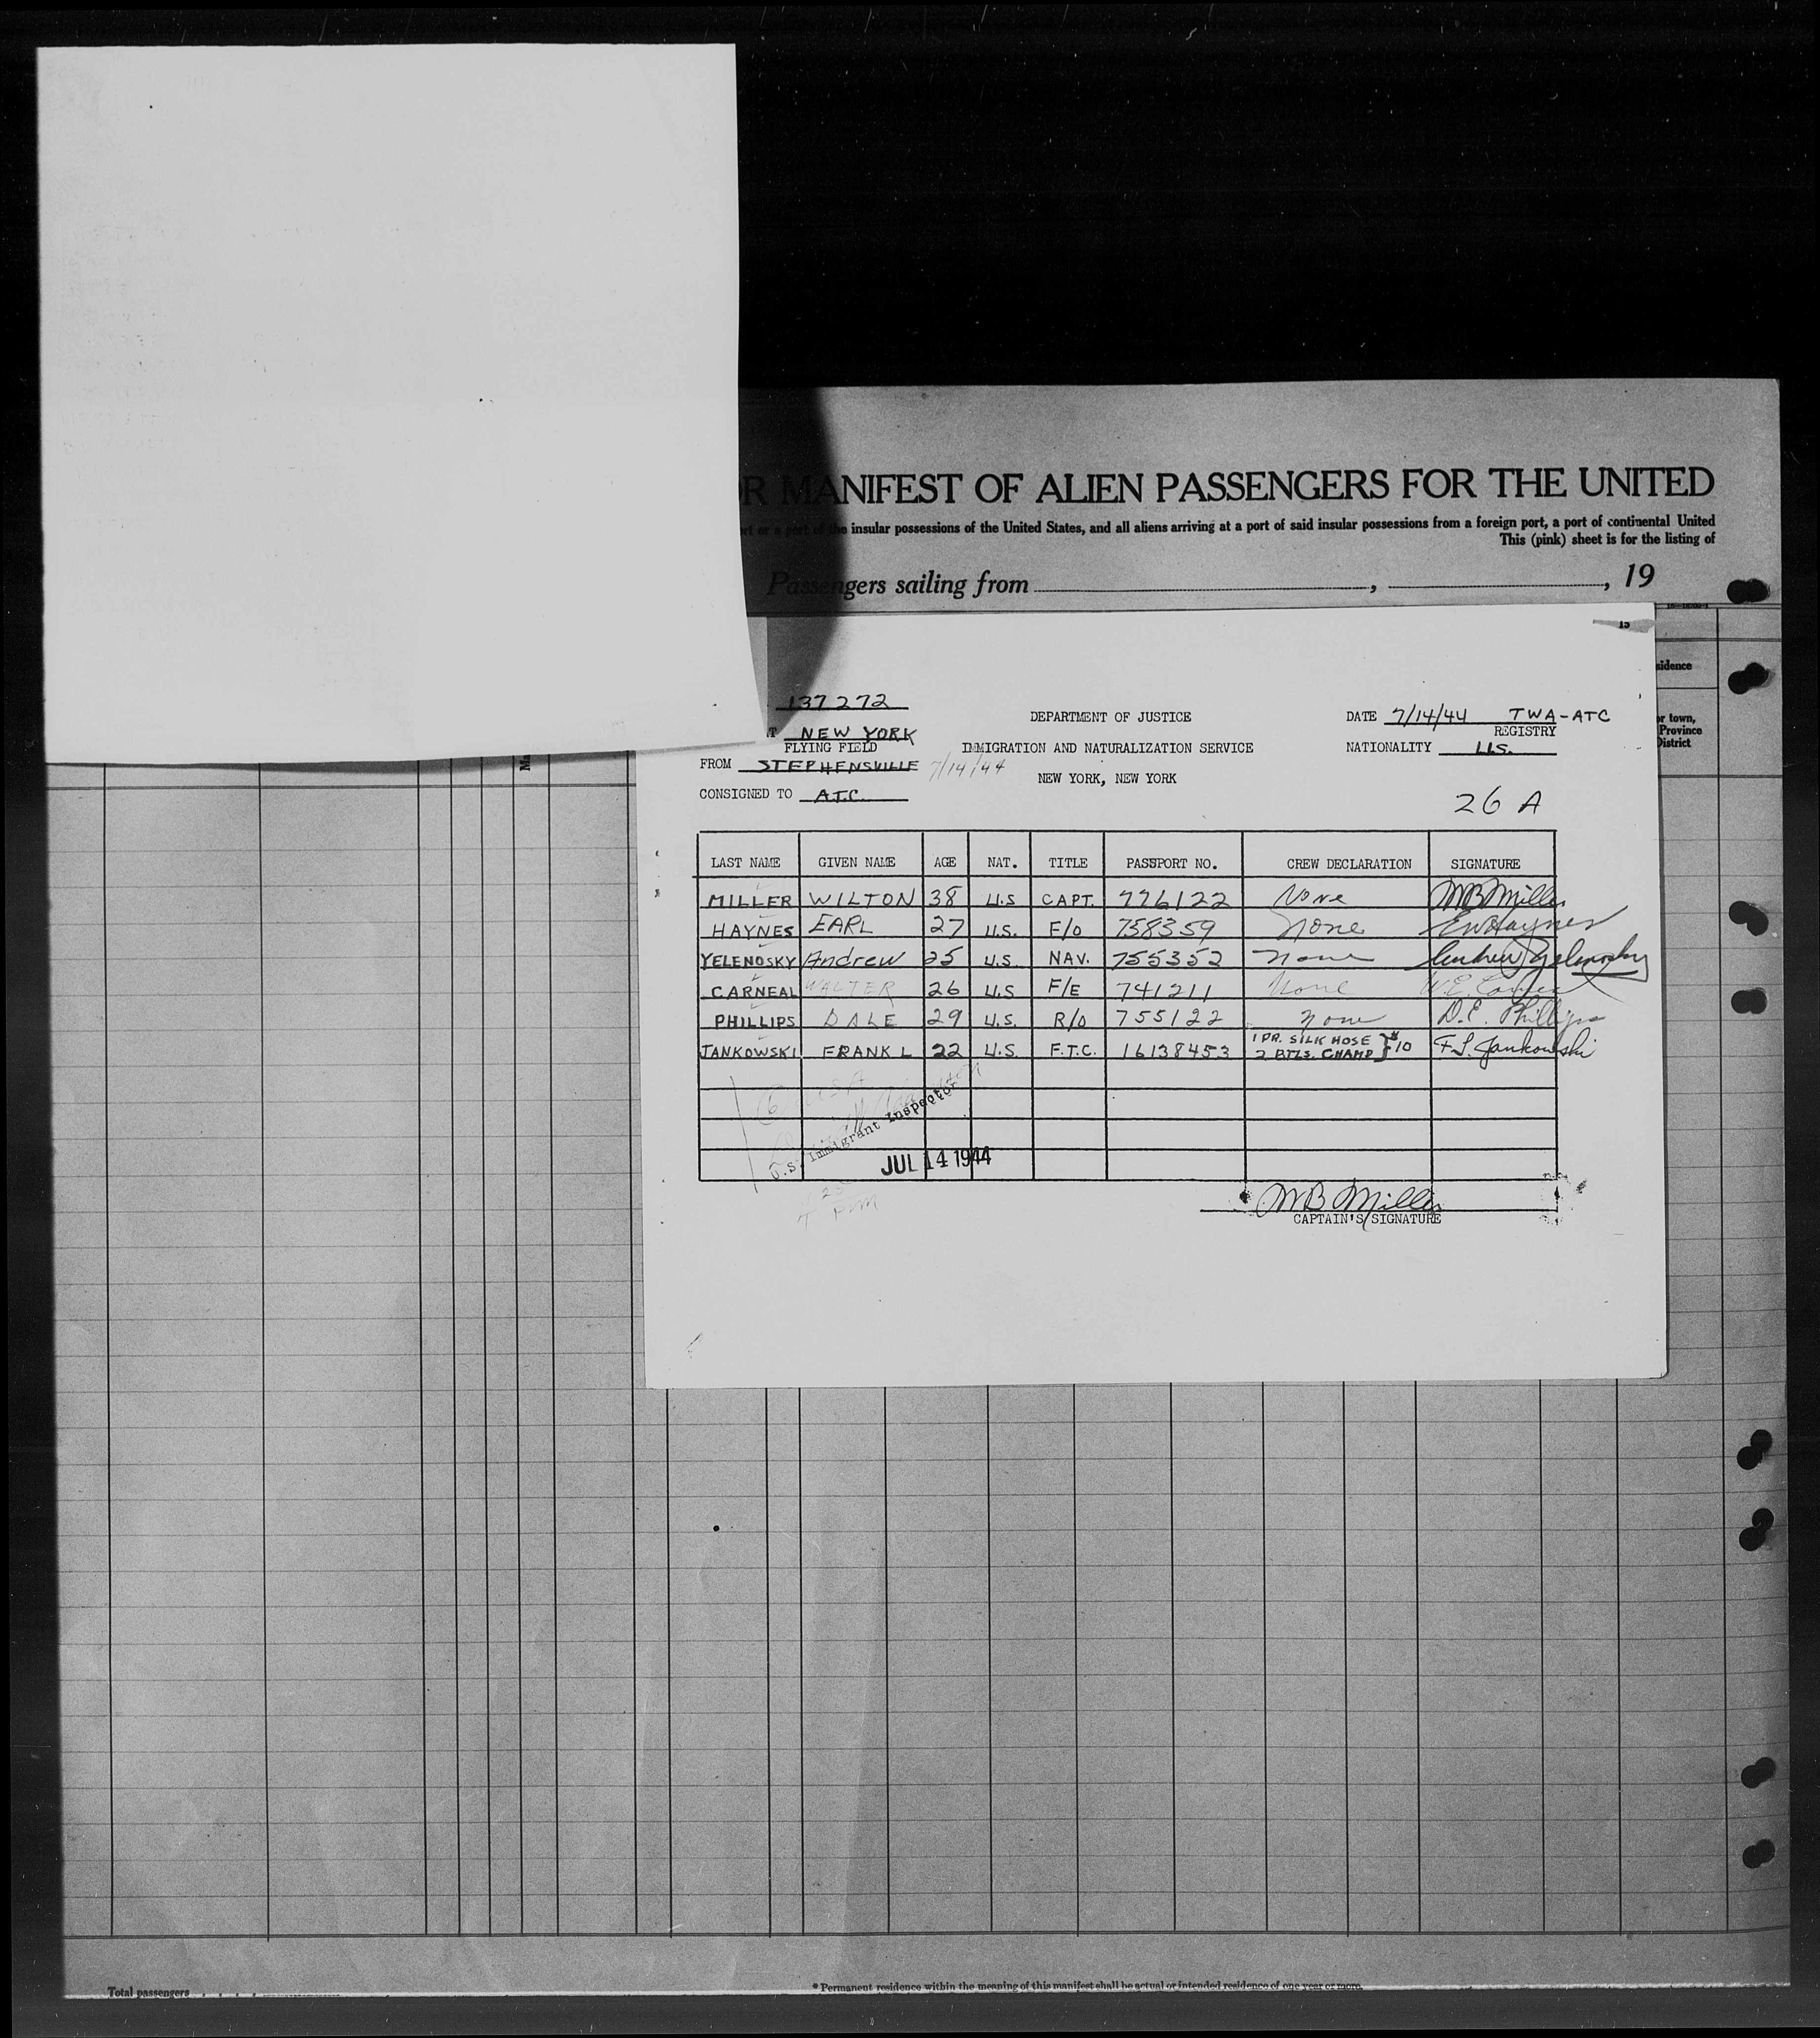 R MANIFEST OF ALIEN PASSENGERS FOR THE UNITED
insular possessions of the United States, and all aliens arriving at a port of said insular possessions from a foreign port, a port of continental United
This (pink) sheet is for the listing of
Passengers sailing from , , 19
15
sidence
or town,
Province
District
137272
DEPARTMENT OF JUSTICE
DATE 7/14/44 TWA-ATC
T NEW YORK
REGISTRY
FLYING FIELD
IMMIGRATION AND NATURALIZATION SERVICE
NATIONALITY U.S.
FROM STEPHENSVILLE 7/14/44
NEW YORK, NEW YORK
CONSIGNED TO A.T.C.
26 A
LAST NAME GIVEN NAME AGE NAT. TITLE PASSPORT NO. CREW DECLARATION SIGNATURE
MILLER WILTON 38 U.S CAPT. 776122 None WB Miller
HAYNES EARL 27 U.S. F/O 758359 None EW Haynes
YELENOSKY Andrew 25 U.S NAV. 755352 None Andrew Yelenosky
CARNEAL WALTER 26 U.S F/E 741211 None W.E. Carneal
PHILLIPS DALE 29 U.S. R/O 755122 none D.E. Phillips
JANKOWSKI FRANK L 22 U.S. F.T.C. 16138453 1 PR. SILK HOSE 2 BTLS. CHAMP } $10 F.L. Jankowski
6 USA
U.S. Immigrant Inspector
JUL 14 1944
PM
WB Miller
CAPTAIN'S SIGNATURE
Ma
Total passengers
* Permanent residence within the meaning of this manifest shall be actual or intended residence of one year or more.